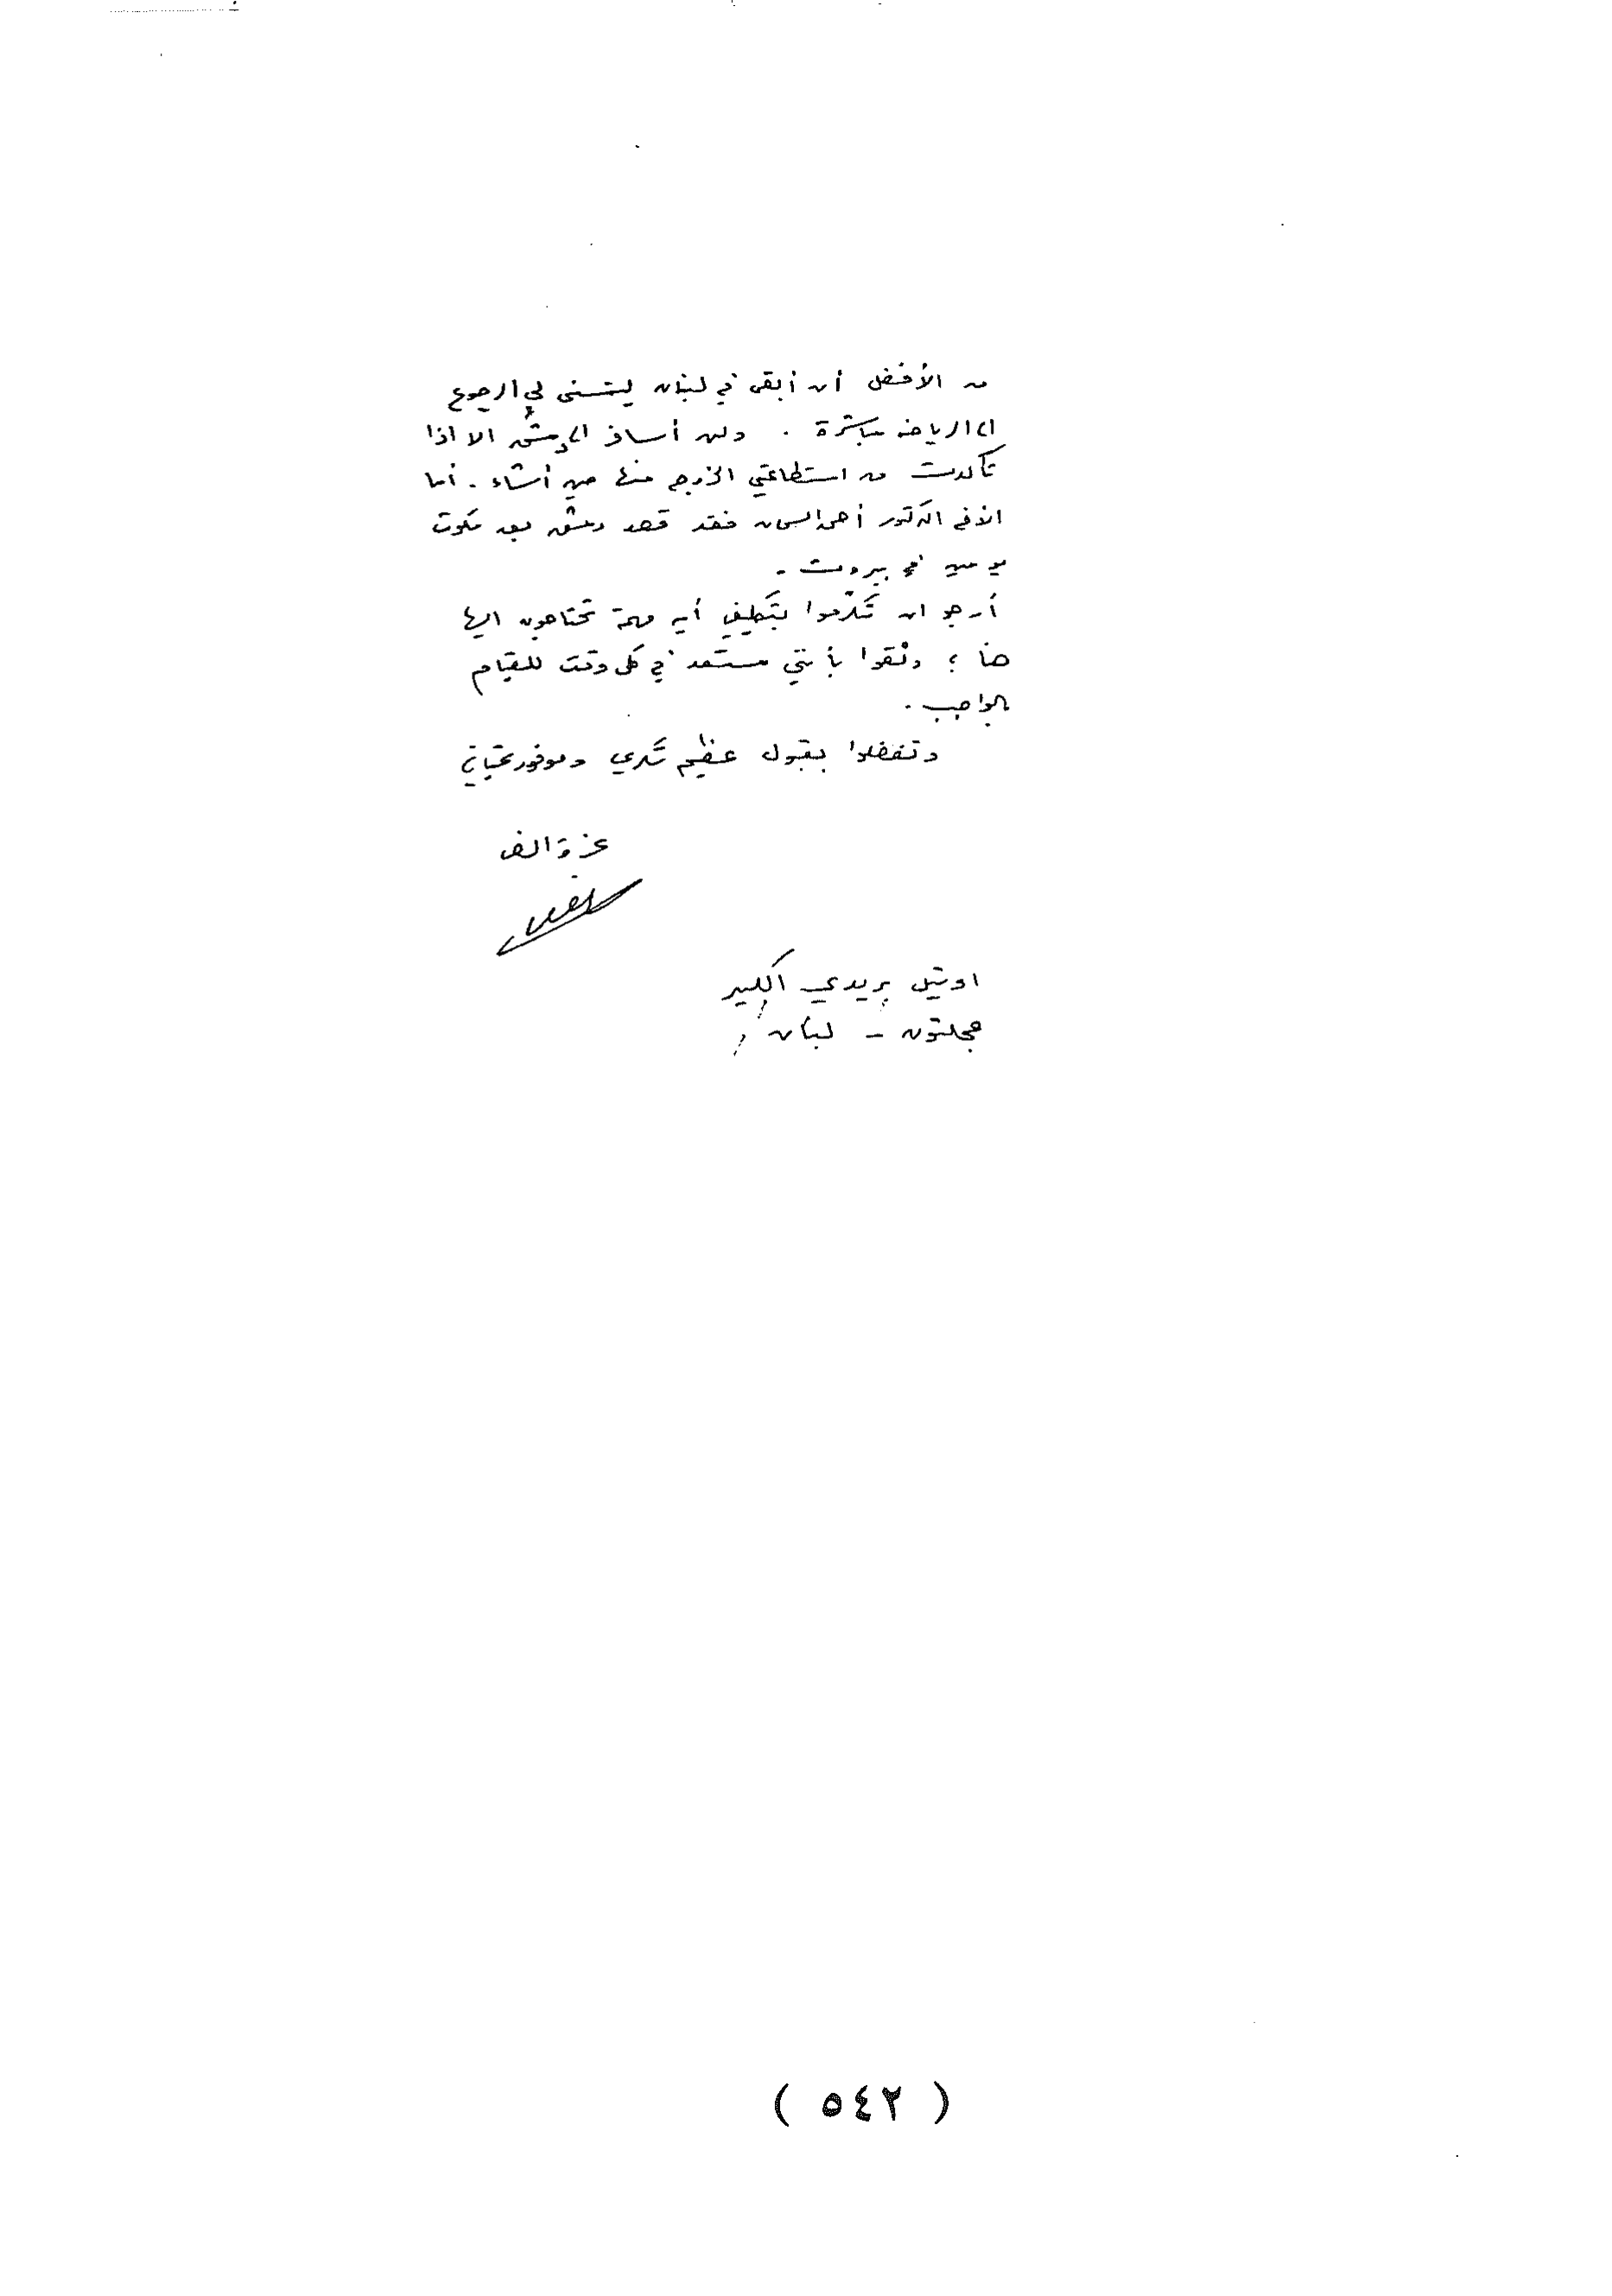 من الأفضل أن أبقى في لبنان ليتسنى لي الرجوع
الى الرياض مباشرة . ولن أسافر الى دمشق الا اذا
تأكدت من استطاعتي الخروج منها حين أشاء . أما
الأخ الدكتور أحمد السمان فقد قصد دمشق بعد مكوث
يومين في بيروت .
أرجو ان تكرموا بتكليفي أية مهمة تحتاجون اليها
هنا ؛ وثقوا بأنني مستعد في كل وقت للقيام
بالواجب .
وتفضلوا بقبول عظيم شكري وموفور تحياتي
عزة النص
اوتيل بريدي الكبير
عجلتون - لبنان
( ٥٤٢ )